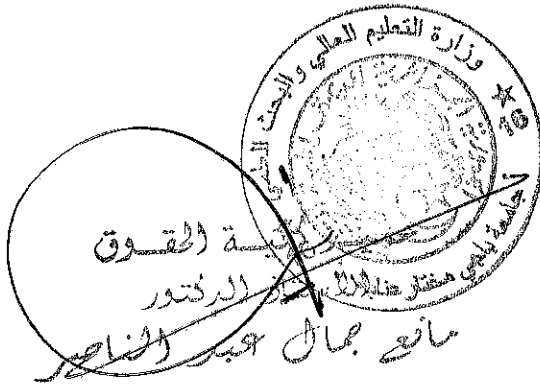 وزارة التعليم العالي والبحث العلمي
جامعة باجي مختار عنابة
كلية الحقوق
الأستاذ الدكتور
مانع جمال عبد الناصر